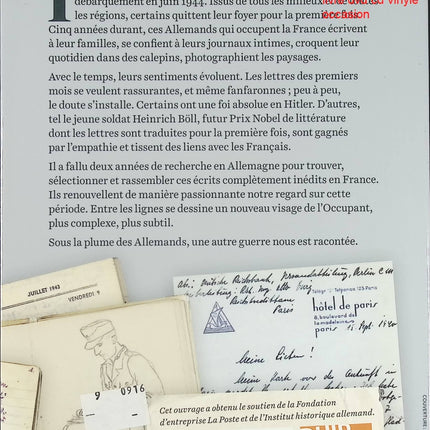 débarquement en juin 1944. Issus de tous les milieux et de toutes
les régions, certains quittent leur foyer pour la première fois.
Cinq années durant, ces Allemands qui occupent la France écrivent
à leur familles, se confient à leurs journaux intimes, croquent leur
quotidien dans des calepins, photographient les paysages.
Avec le temps, leurs sentiments évoluent. Les lettres des premiers
mois se veulent rassurantes, et même fanfaronnes ; peu à peu,
le doute s'installe. Certains ont une foi absolue en Hitler. D'autres,
tel le jeune soldat Heinrich Böll, futur Prix Nobel de littérature
dont les lettres sont traduites pour la première fois, sont gagnés
par l'empathie et tissent des liens avec les Français.
Il a fallu deux années de recherche en Allemagne pour trouver,
sélectionner et rassembler ces écrits complètement inédits en France.
Ils renouvellent de manière passionnante notre regard sur cette
période. Entre les lignes se dessine un nouveau visage de l'Occupant,
plus complexe, plus subtil.
Sous la plume des Allemands, une autre guerre nous est racontée.
JUILLET 1943
VENDREDI 9
hôtel de paris
8, boulevard de
la madeleine
paris
Meine Lieben!
9 0916
Cet ouvrage a obtenu le soutien de la Fondation
d'entreprise La Poste et de l'Institut historique allemand.
COUVERTURE